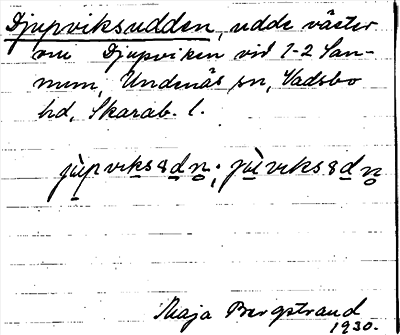 Djupviksudden, udde väster
om Djupviken vid 1-2 San-
num, Undenäs sn, Vadsbo
hd, Skarab. l.
jùpviks8dn; jùviks8dn
Maja Bergstrand
1930.